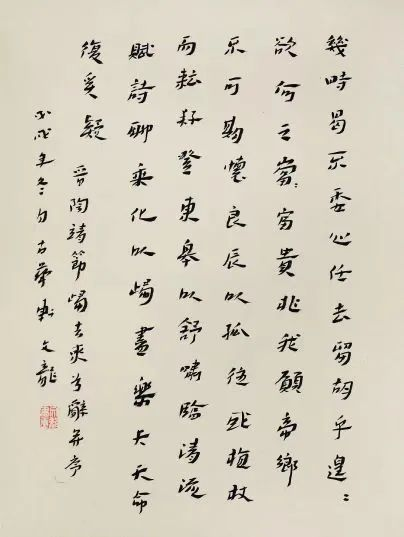 幾時曷不委心任去留胡乎遑〻
欲何之富貴非我願帝鄉
不可期懷良辰以孤往或植杖
而耘耔登東皋以舒嘯臨清流
賦詩聊乘化以歸盡樂夫天命
復奚疑
晉陶靖節歸去來兮辭并序
丙戌年冬月古華軒文龍